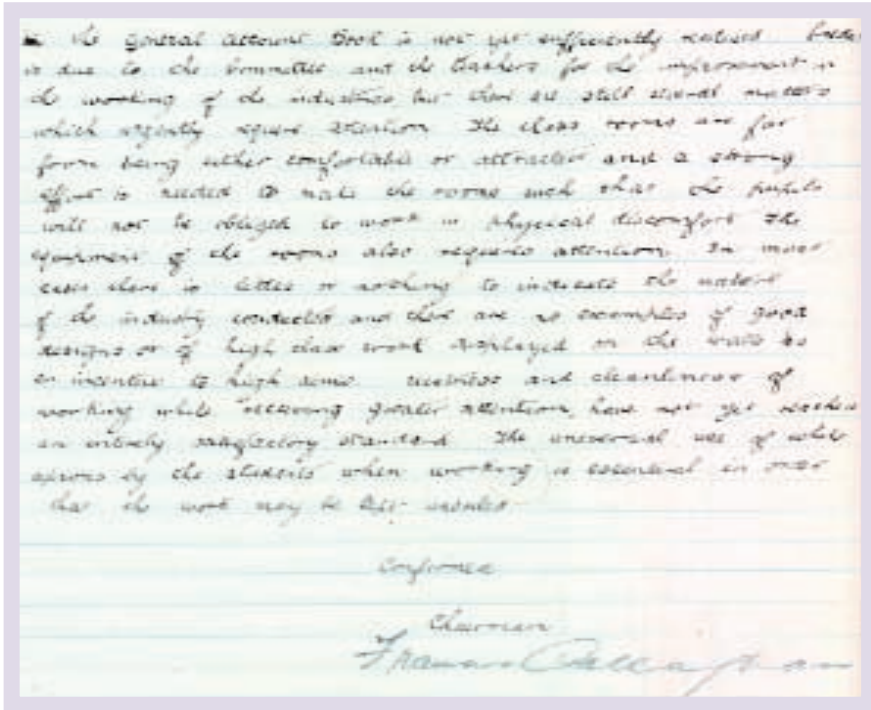 the General Account Book is not yet sufficiently realised. Credit
is due to the Committee and the Teachers for the improvement in
the working of the industries but there are still several matters
which urgently require attention. The class rooms are far
from being either comfortable or attractive and a strong
effort is needed to make the rooms such that the pupils
will not be obliged to work in physical discomfort. The
equipment of the rooms also requires attention. In most
cases there is little or nothing to indicate the nature
of the industry conducted and there are no examples of good
designs or of high class work displayed on the walls as
an incentive to high aims. Neatness and cleanliness of
working while receiving greater attention, have not yet reached
an entirely satisfactory standard. The universal use of white
aprons by the students when working is essential in order
that the work may be kept
Confirmed
Chairman